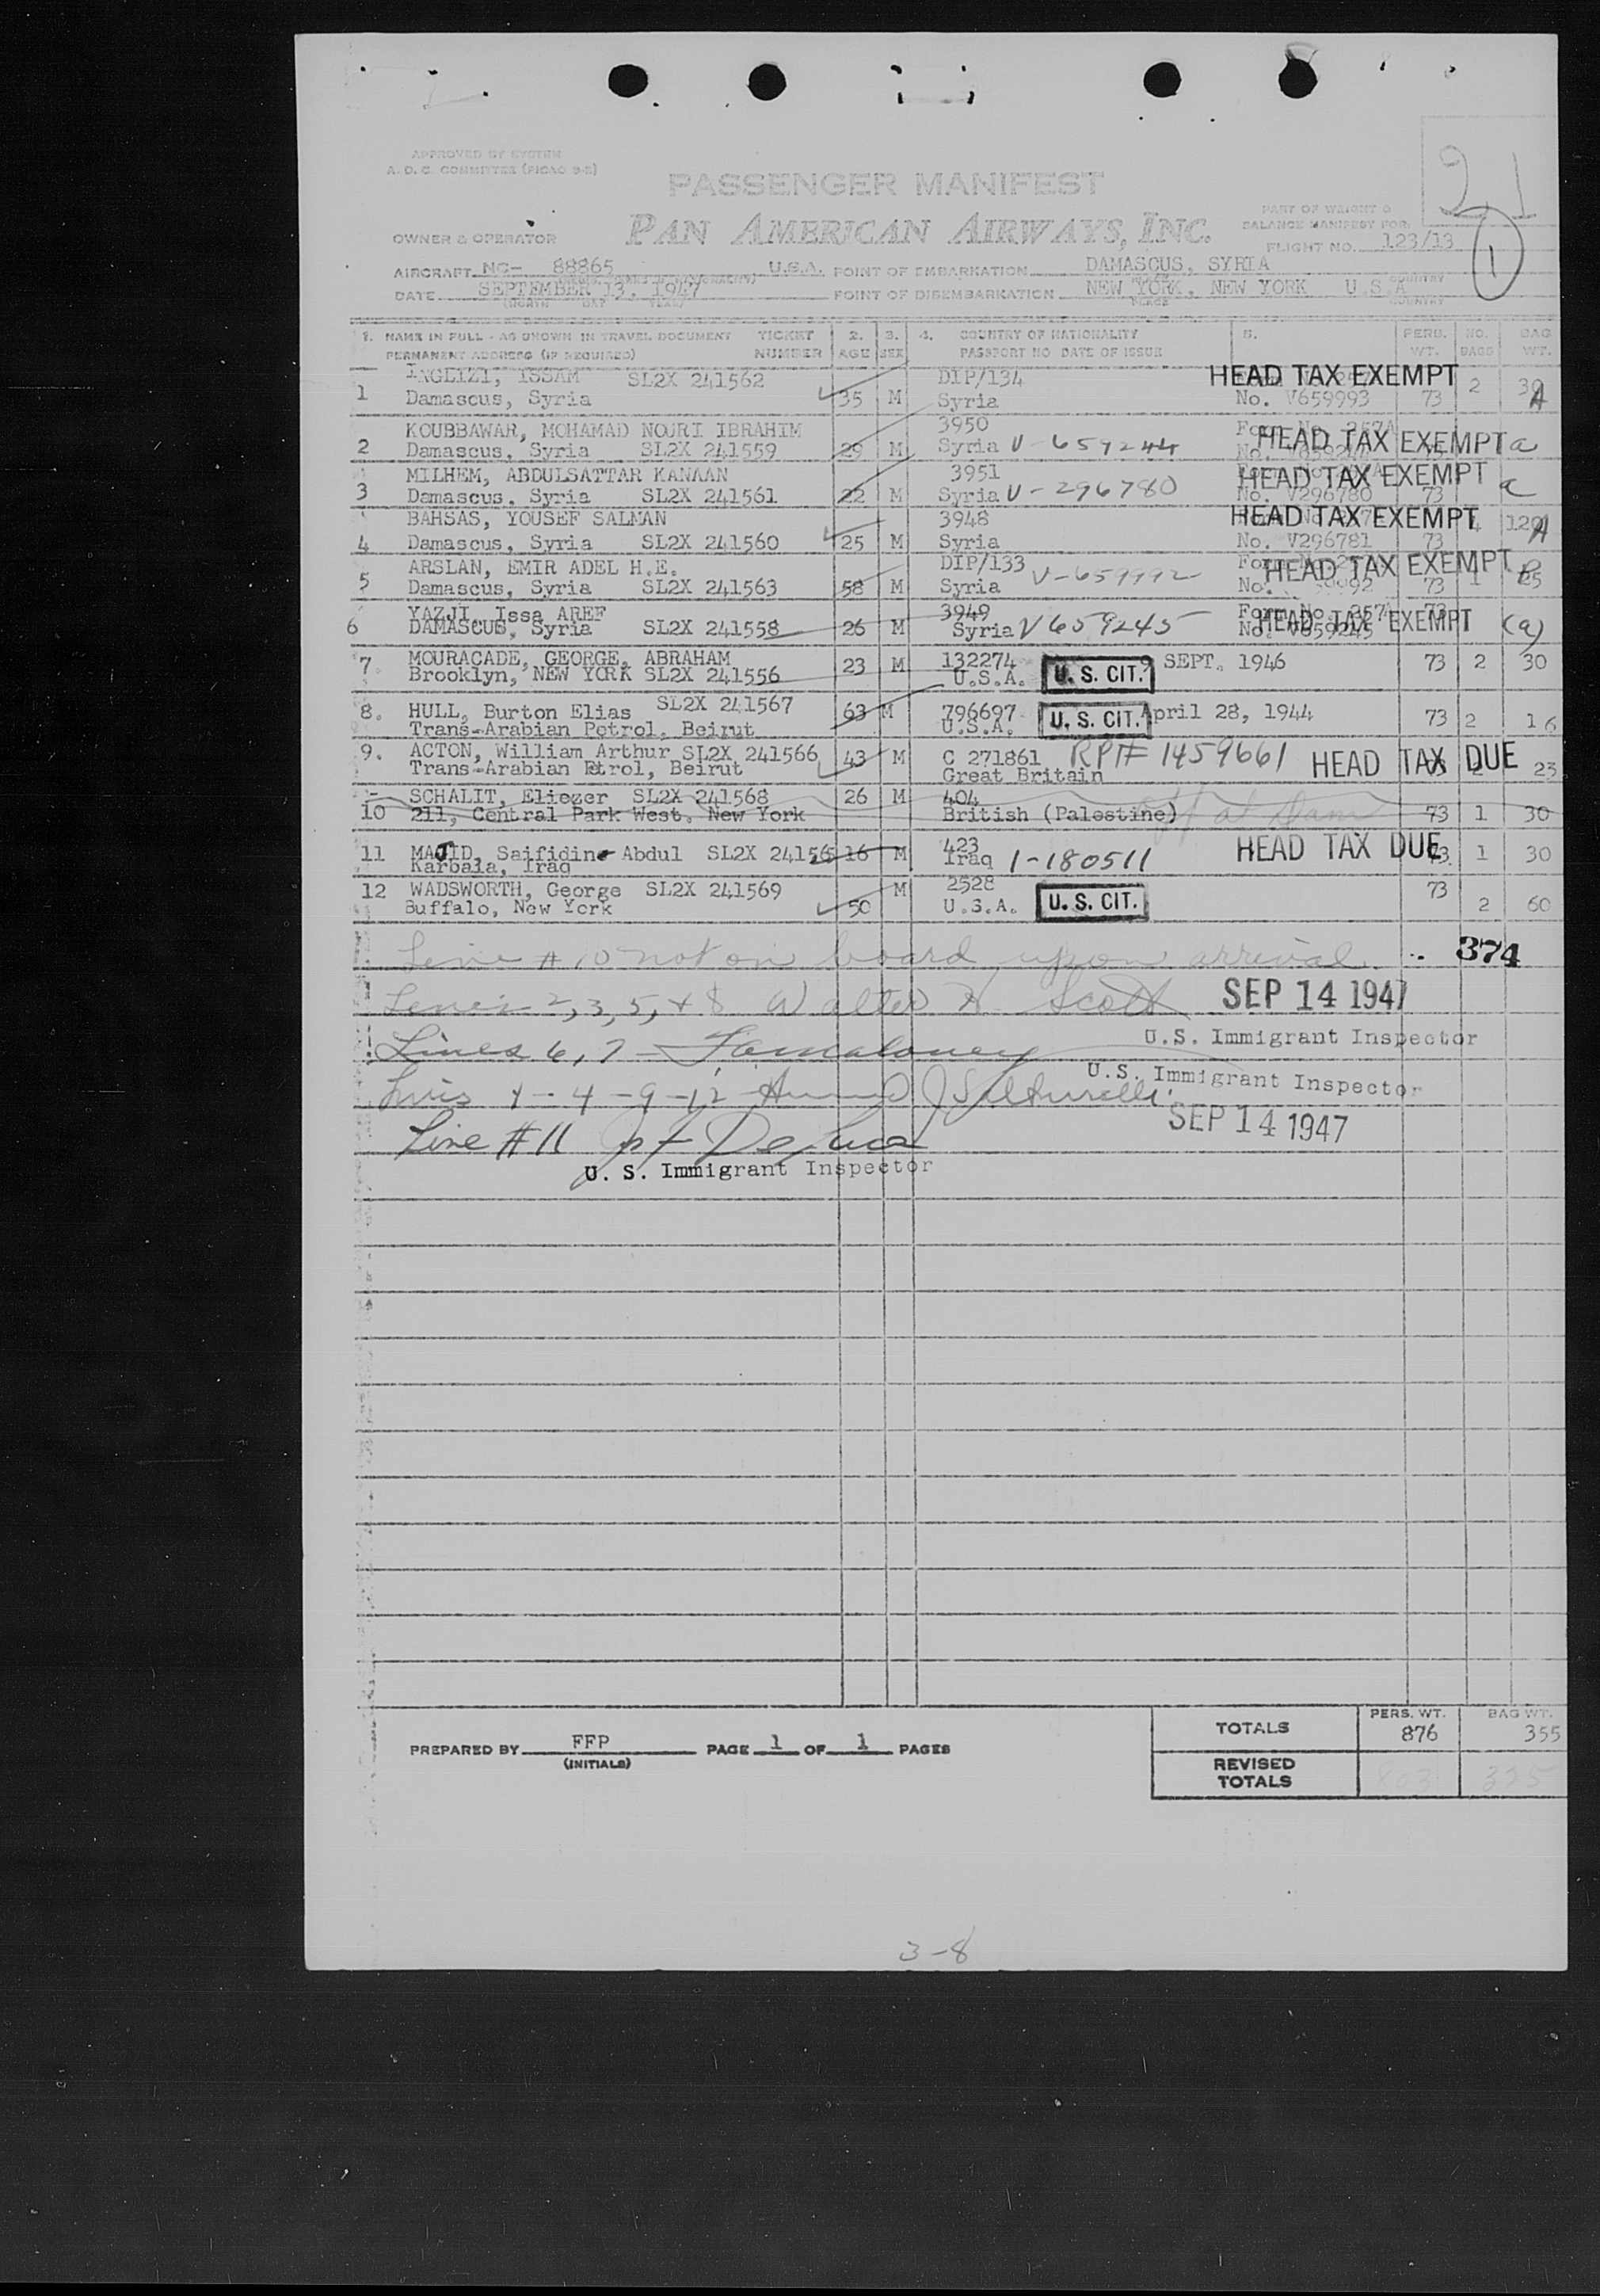 APPROVED BY SYSTEM
A.O.C. COMMITTEE (PICAO 9-2)
PASSENGER MANIFEST
21
PAN AMERICAN AIRWAYS, INC.
OWNER & OPERATOR
PART OF WEIGHT &
BALANCE MANIFEST FOR
FLIGHT NO. 123/13
1
AIRCRAFT NC- 88865 U.S.A. POINT OF EMBARKATION DAMASCUS, SYRIA
DATE SEPTEMBER 13, 1947 POINT OF DISEMBARKATION NEW YORK, NEW YORK U S A
(MONTH DAY YEAR) PLACE COUNTRY
1. NAME IN FULL - AS SHOWN IN TRAVEL DOCUMENT TICKET 2. 3. 4. COUNTRY OF NATIONALITY 5. PERS. NO. BAG
PERMANENT ADDRESS (IF REQUIRED) NUMBER AGE SEX PASSPORT NO DATE OF ISSUE WT. BAGS WT.
INGLIZI, ISSAM SL2X 241562 DIP/134 HEAD TAX EXEMPT
1 Damascus, Syria 35 M Syria No. V659993 73 2 30 A
KOUBBAWAR, MOHAMAD NOURI IBRAHIM 3950 Form No. 257A
2 Damascus, Syria SL2X 241559 29 M Syria V-659244 HEAD TAX EXEMPT a
MILHEM, ABDULSATTAR KANAAN 3951 HEAD TAX EXEMPT
3 Damascus, Syria SL2X 241561 22 M Syria V-296780 No. V296780 73 a
BAHSAS, YOUSEF SALMAN 3948 HEAD TAX EXEMPT
4 Damascus, Syria SL2X 241560 25 M Syria No. V296781 73 A
ARSLAN, EMIR ADEL H.E. DIP/133 V-659992 HEAD TAX EXEMPT
5 Damascus, Syria SL2X 241563 58 M Syria No. 73 1
YAZJI, Issa AREF 3949 Form No. 257A 73
6 DAMASCUS, Syria SL2X 241558 26 M Syria V659245 No. V659245 HEAD TAX EXEMPT (a)
7. MOURACADE, GEORGE, ABRAHAM 23 M 132274 9 SEPT. 1946 73 2 30
Brooklyn, NEW YORK SL2X 241556 U.S.A. U. S. CIT.
8. HULL, Burton Elias SL2X 241567 63 M 796697 April 28, 1944 73 2 16
Trans-Arabian Petrol, Beirut U.S.A. U. S. CIT.
9. ACTON, William Arthur SL2X 241566 43 M C 271861 RPT# 1459661 HEAD TAX DUE 23
Trans-Arabian Etrol, Beirut Great Britain
SCHALIT, Eliezer SL2X 241568 26 M 404
10 211, Central Park West, New York British (Palestine) off at Dam 73 1 30
11 MAJID, Saifidine Abdul SL2X 241565 16 M 423 HEAD TAX DUE 73 1 30
Karbala, Iraq Iraq 1-180511
12 WADSWORTH, George SL2X 241569 M 2528 73
Buffalo, New York 50 U.S.A. U. S. CIT. 2 60
Line # 10 not on board upon arrival. 374
Lines 2, 3, 5, + 8 Walter H. Scott SEP 14 1947
U.S. Immigrant Inspector
Lines 6, 7
U.S. Immigrant Inspector
Lines 1 - 4 - 9 - 12
SEP 14 1947
Line # 11
U. S. Immigrant Inspector
TOTALS PERS. WT. BAG WT.
876 355
PREPARED BY FFP PAGE 1 OF 1 PAGES
(INITIALS)
REVISED
TOTALS 803 325
3-8